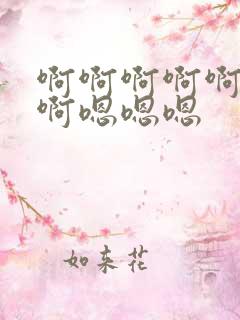 啊啊啊啊啊
啊嗯嗯嗯
如来花